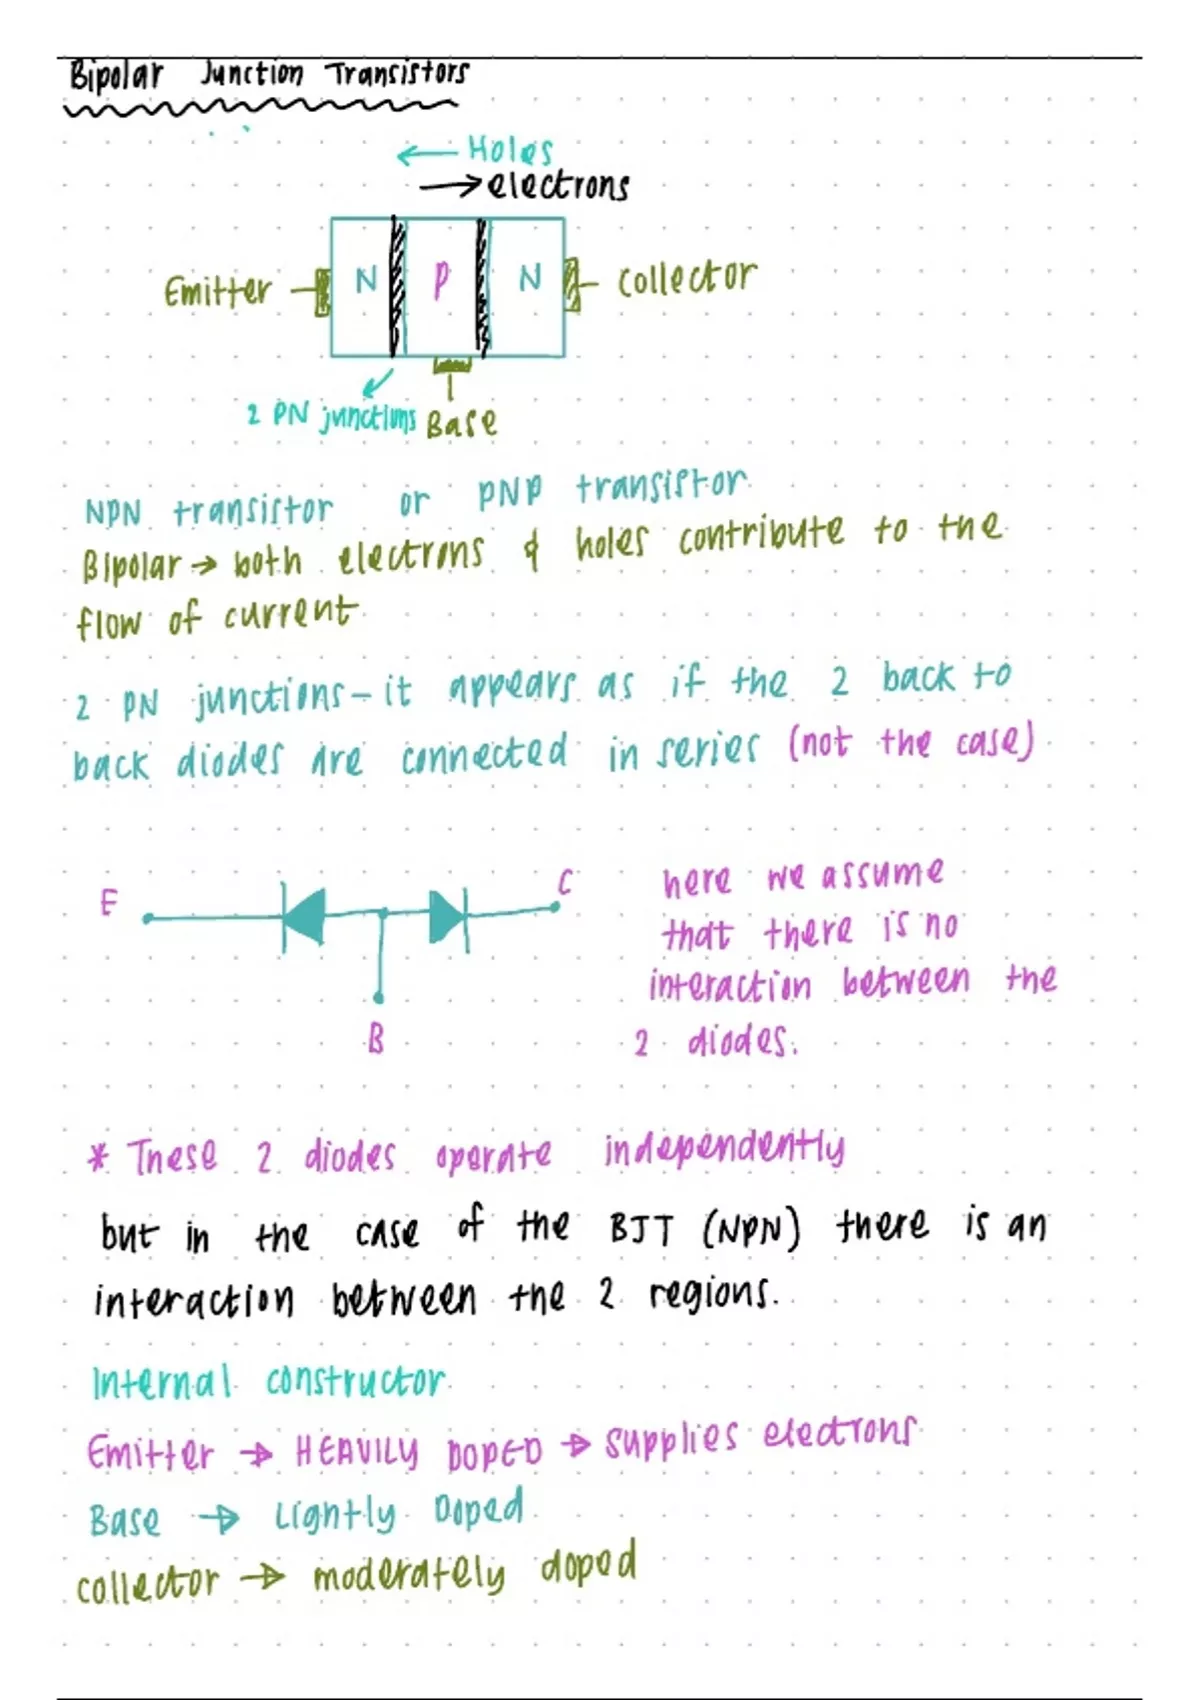 Bipolar Junction Transistors
← Holes
→ electrons
Emitter N P N collector
2 PN junctions Base
NPN transistor or PNP transistor
Bipolar → both electrons & holes contribute to the
flow of current
2 PN junctions - it appears as if the 2 back to
back diodes are connected in series (not the case)
E C
B
here we assume
that there is no
interaction between the
2 diodes.
* These 2 diodes operate independently
but in the case of the BJT (NPN) there is an
interaction between the 2 regions.
Internal constructor
Emitter → HEAVILY DOPED → supplies electrons
Base → Lightly Doped
collector → moderately doped